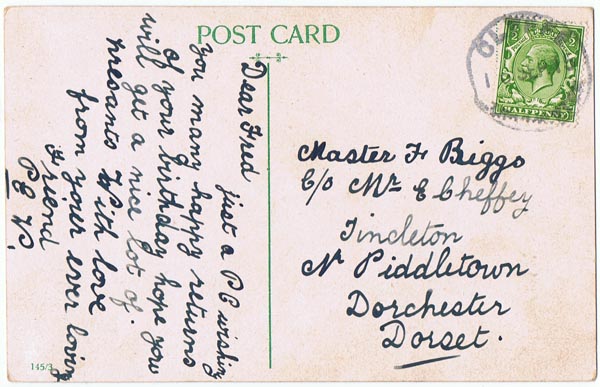 POST CARD
Dear Fred
just a PC wishing
you many happy returns
of your birthday hope you
will get a nice lot of
presants With love
from your ever loving
Friend
P E W.
HALFPENNY
Master F Biggo
C/o Mr E Cheffey
Tincleton
Nr Piddletown
Dorchester
Dorset.
145/3